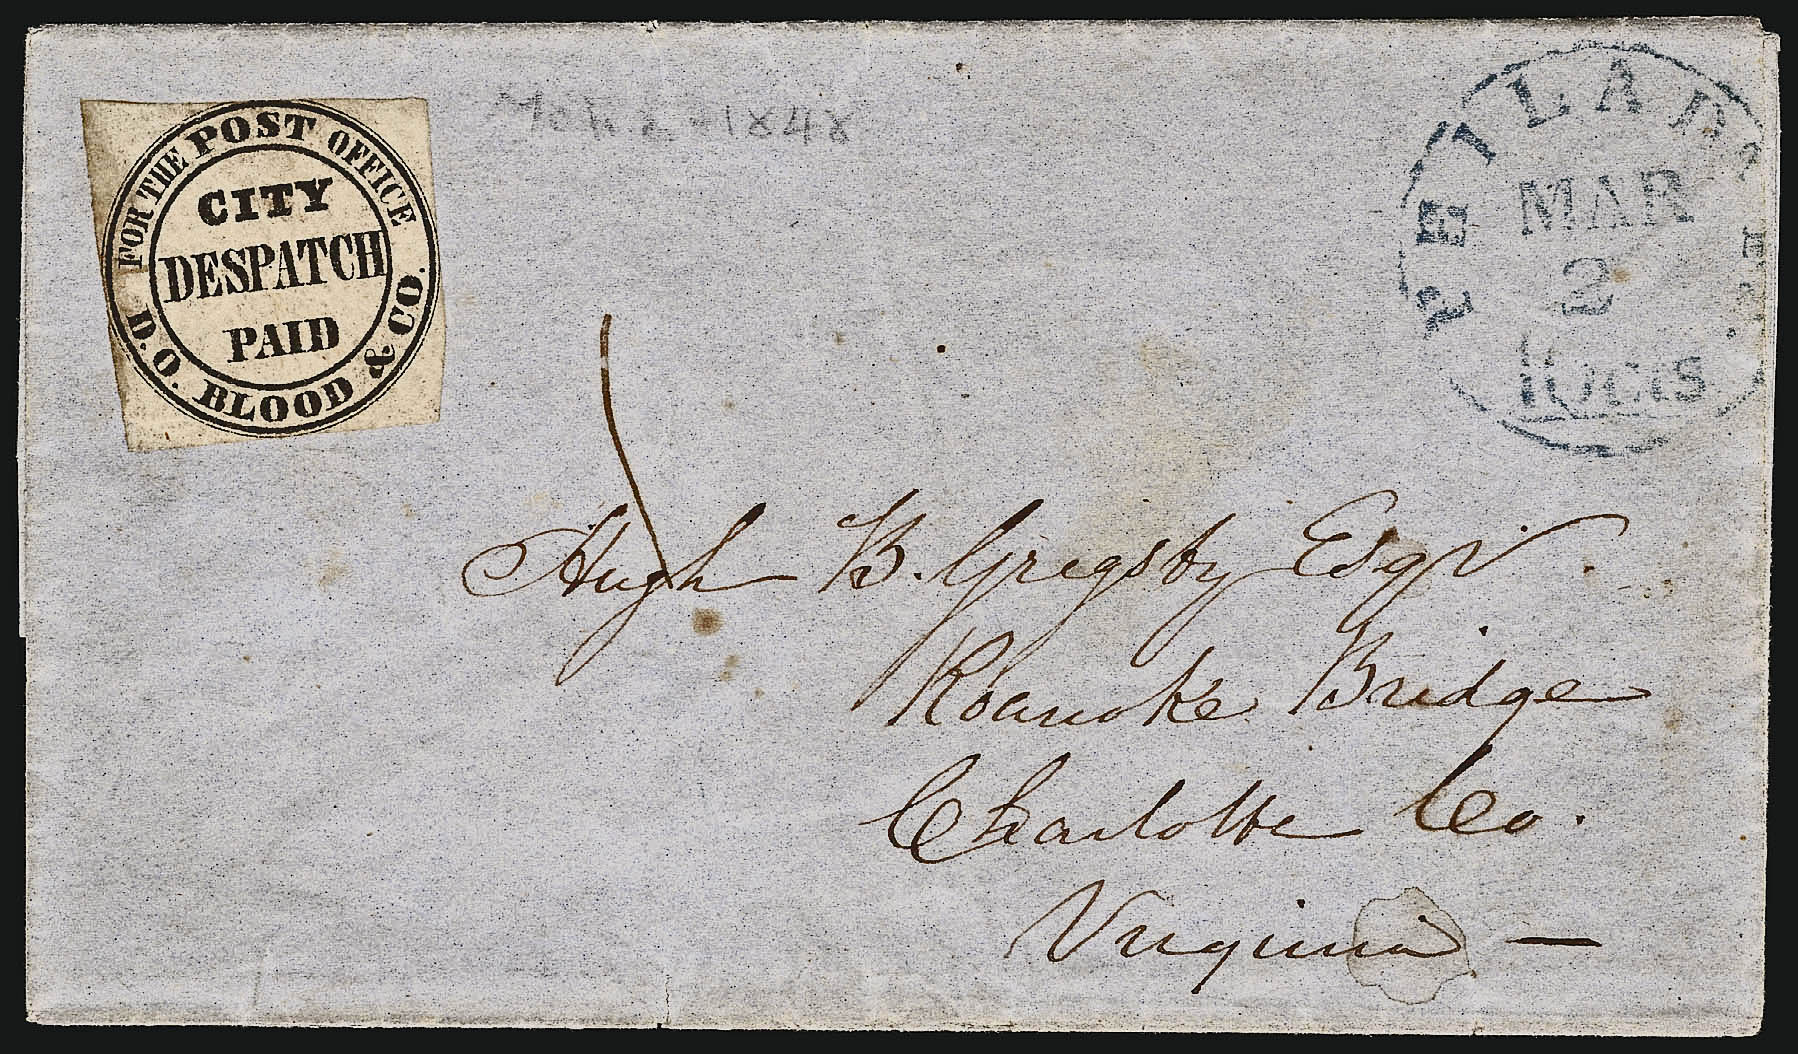 FOR THE POST OFFICE
CITY
DESPATCH
PAID
D.O. BLOOD & CO.
1848
PHILADA Pa.
MAR
2
10cts
Hugh B. Grigsby Esqr.
Roanoke Bridge
Charlotte Co.
Virginia —